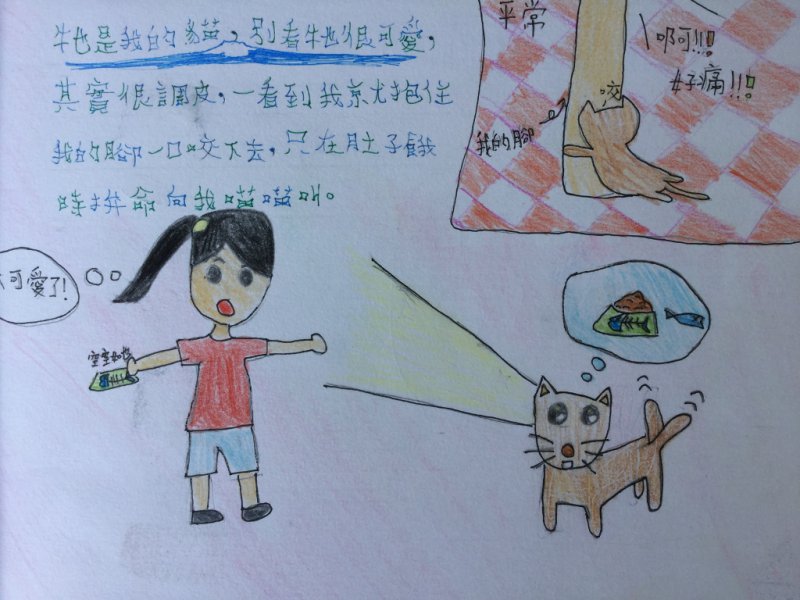 牠是我的貓，別看牠很可愛，
其實很調皮，一看到我就抱住
我的腳一口咬下去，只在肚子餓
時拚命向我喵喵叫。
平常
啊!!!
好痛!!!
咬
我的腳
可愛了!
空空如也